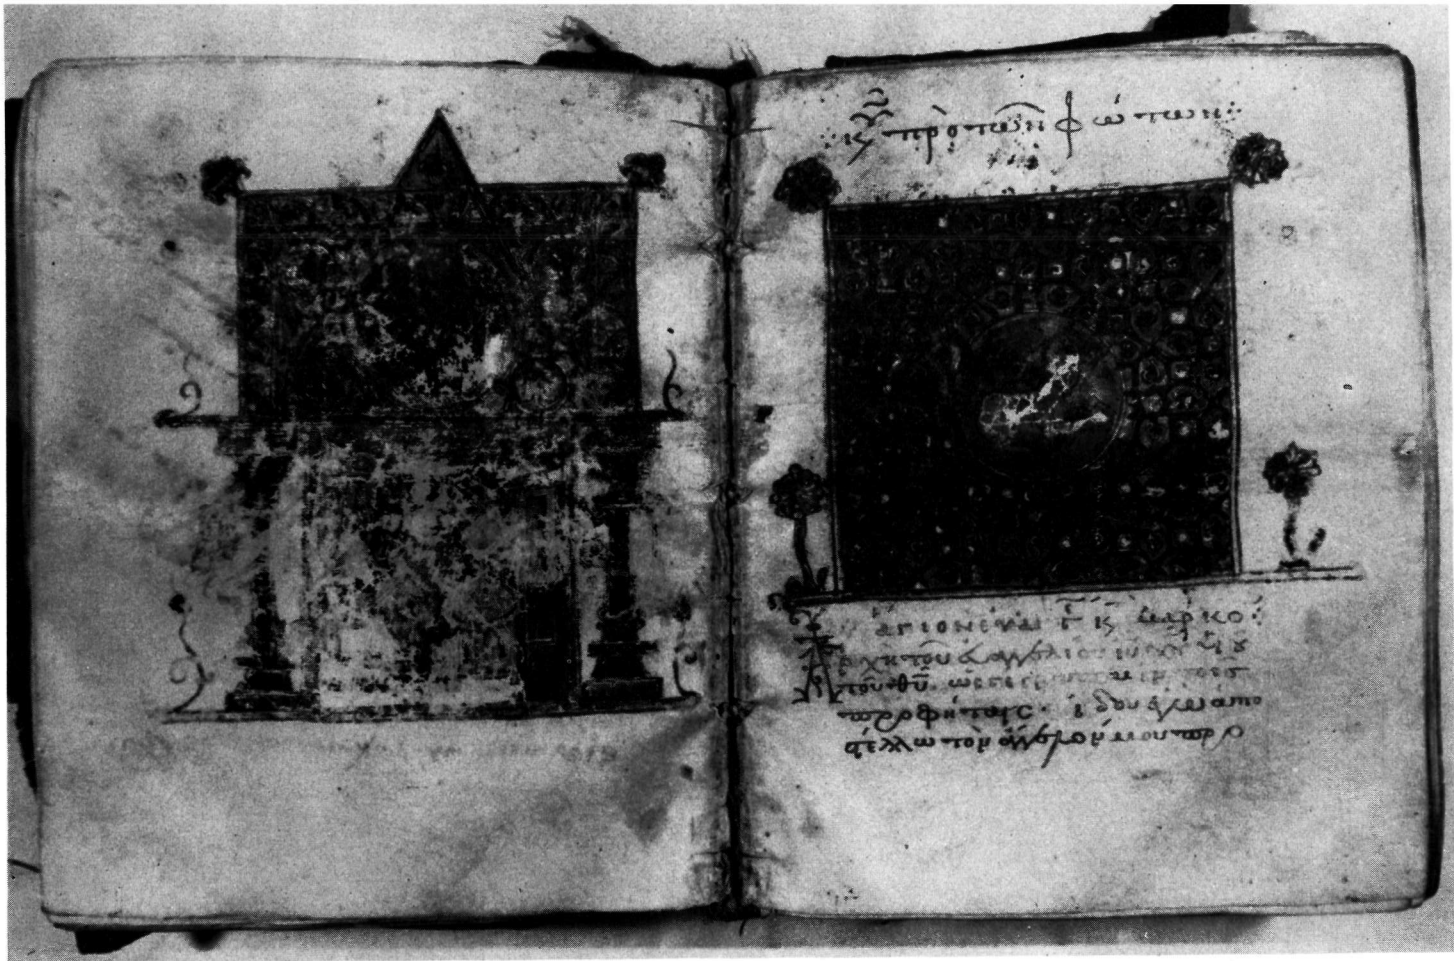 Κυ πρὸ τῶν φώτων:
ἅγιον εὐαγγ κτ μάρκο:
Ἀρχὴ τοῦ εὐαγγελίου ιυ χυ υυ
τοῦ θυ. ὡς γέγραπται ἐν τοῖς
προφήταις. ἰδου ἐγὼ ἀπο
στέλλω τὸν ἄγγελόν μου προ